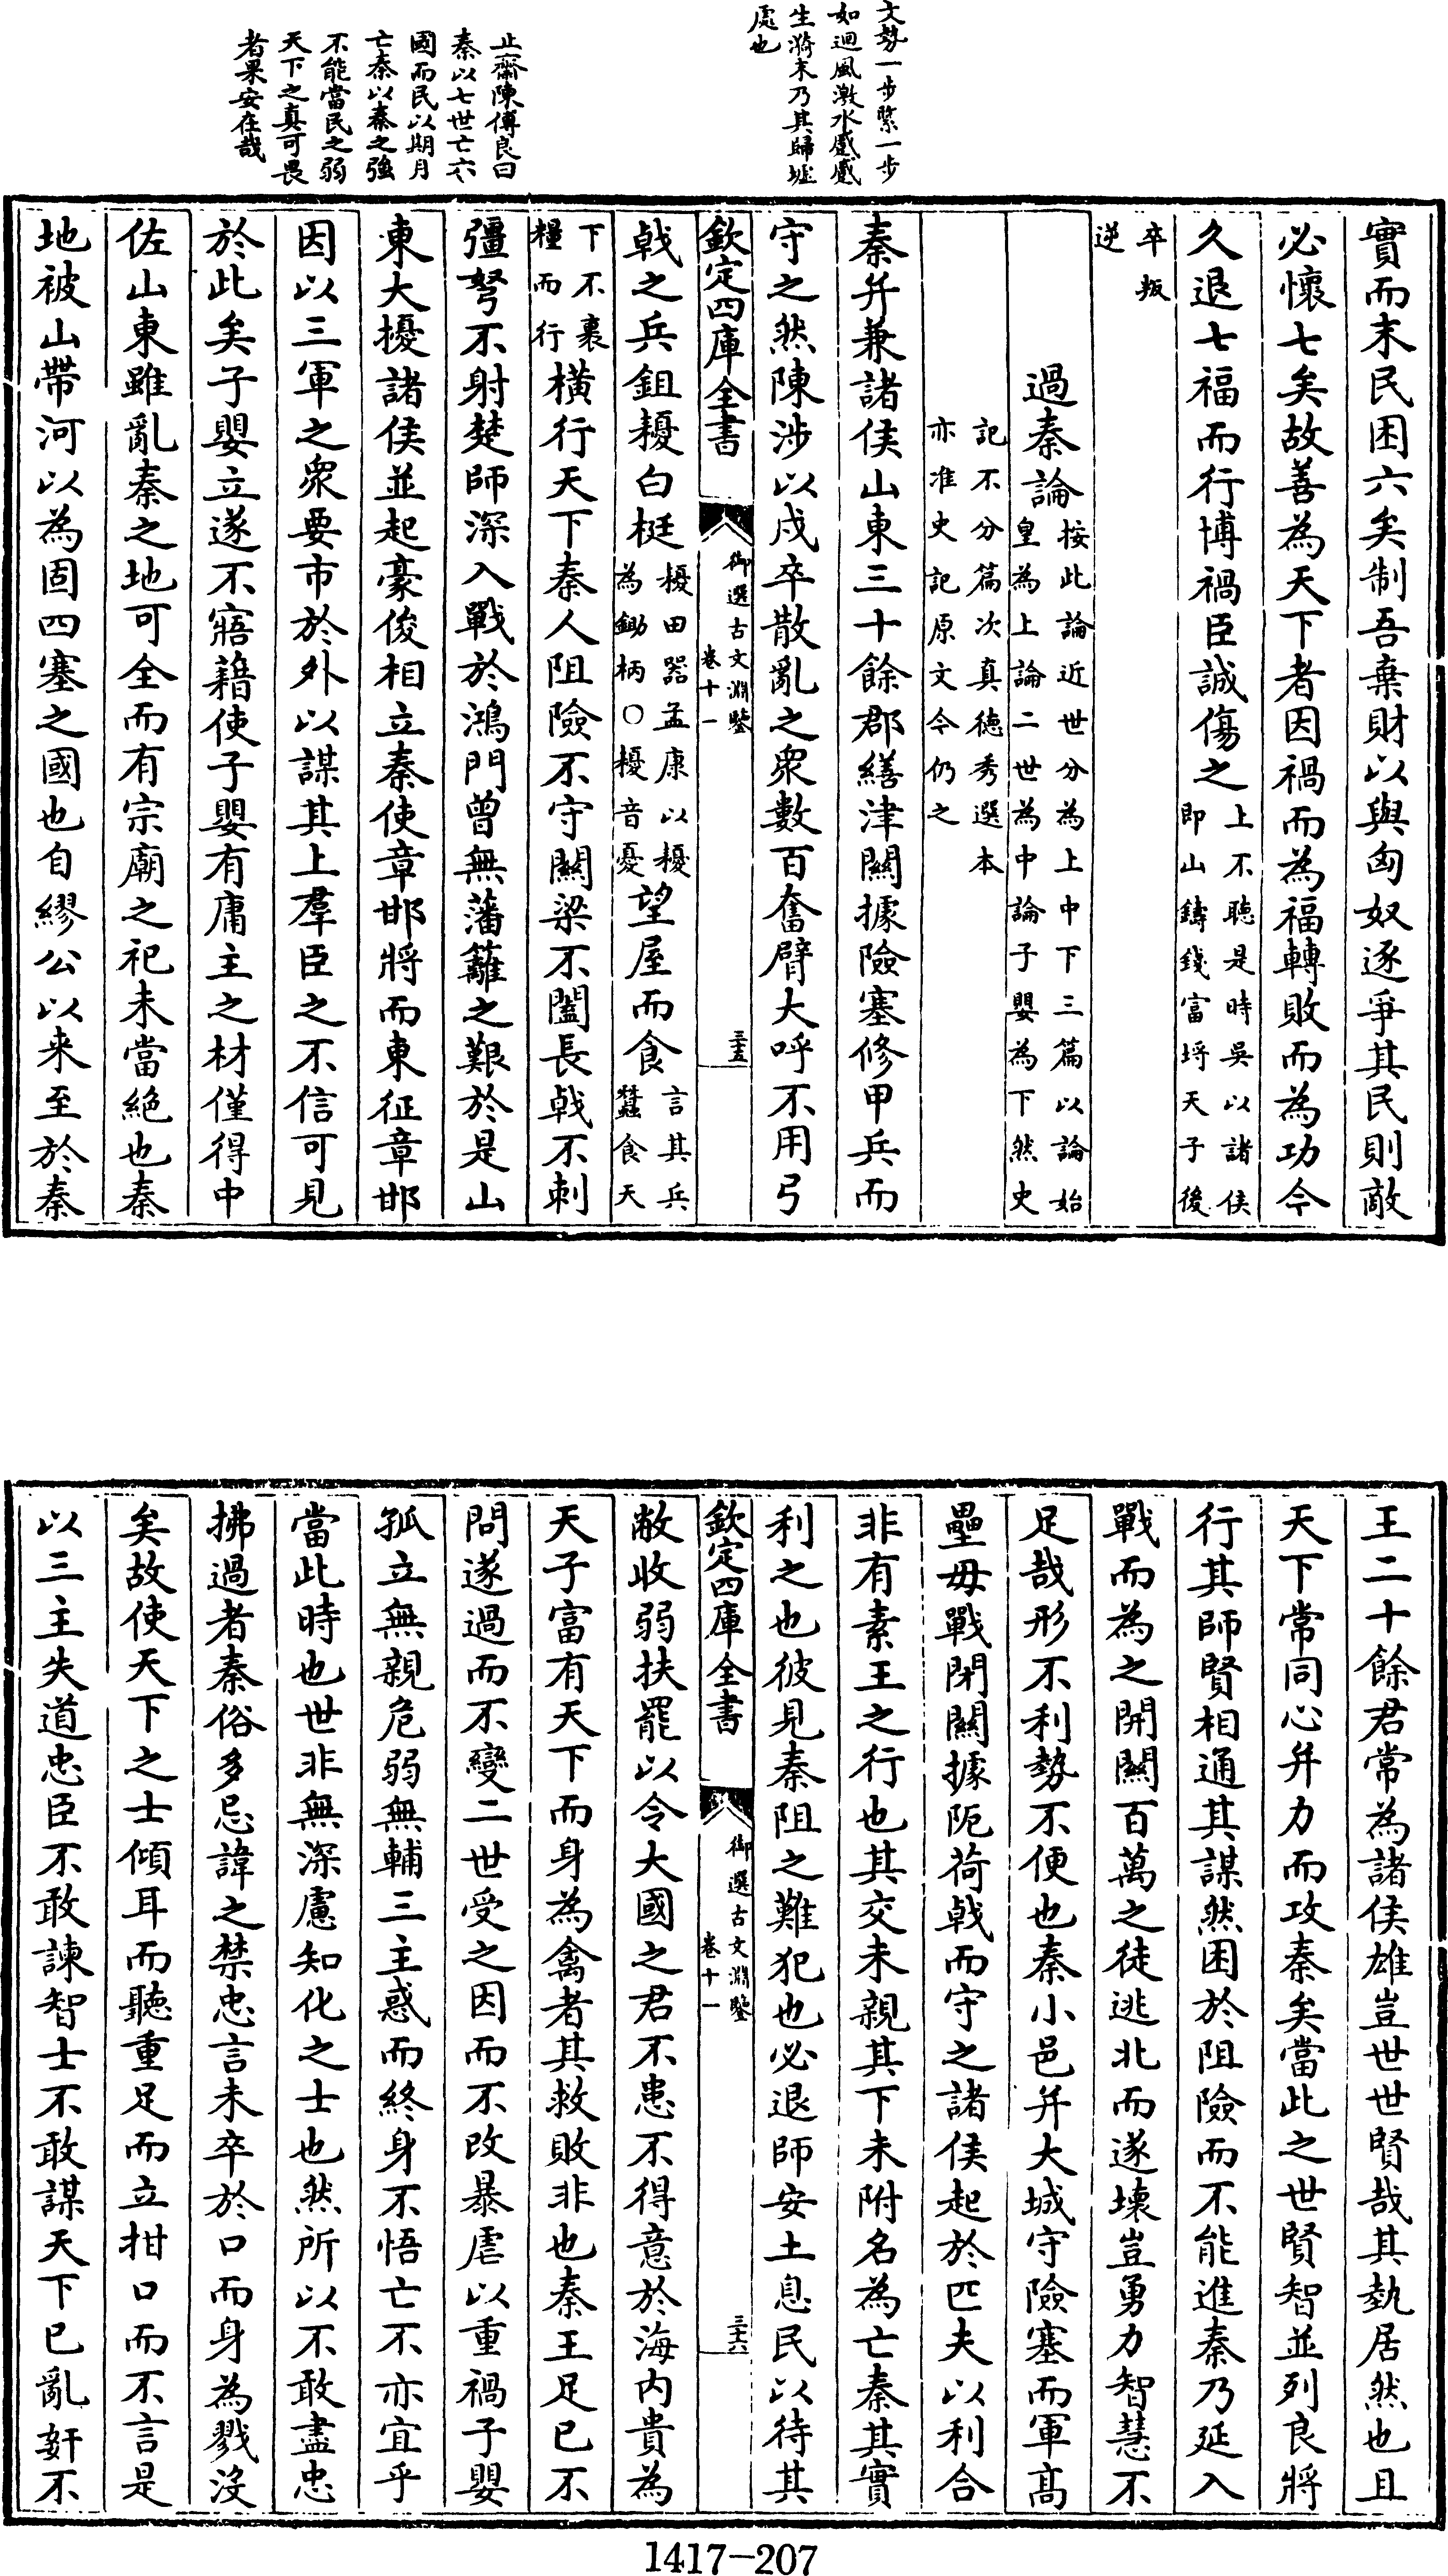 文勢一步緊一步
如迴風激水感感
生漪末乃其歸墟
處也
止齋陳傅良曰
秦以七世亡六
國而民以期月
亡秦以秦之強
不能當民之弱
天下之真可畏
者果安在哉
實而末民困六矣制吾棄財以與匈奴逐爭其民則敵
必懷七矣故善為天下者因禍而為福轉敗而為功今
久退七福而行博禍臣誠傷之上不聽是時吳以諸侯
即山鑄錢富埒天子後
卒叛
逆
過秦論按此論近世分為上中下三篇以論始
皇為上論二世為中論子嬰為下然史
記不分篇次真德秀選本
亦准史記原文今仍之
秦并兼諸侯山東三十餘郡繕津關據險塞修甲兵而
守之然陳涉以戍卒散亂之眾數百奮臂大呼不用弓
欽定四庫全書
御選古文淵鑒
卷十一
三十五
戟之兵鉏耰白梃耰田器孟康以耰
為鋤柄〇耰音憂望屋而食言其兵
蠶食天
下不裹
糧而行橫行天下秦人阻險不守關梁不闔長戟不刺
彊弩不射楚師深入戰於鴻門曾無藩籬之艱於是山
東大擾諸侯並起豪俊相立秦使章邯將而東征章邯
因以三軍之眾要市於外以謀其上羣臣之不信可見
於此矣子嬰立遂不寤藉使子嬰有庸主之材僅得中
佐山東雖亂秦之地可全而有宗廟之祀未當絕也秦
地被山帶河以為固四塞之國也自繆公以来至於秦
王二十餘君常為諸侯雄豈世世賢哉其埶居然也且
天下常同心并力而攻秦矣當此之世賢智並列良將
行其師賢相通其謀然困於阻險而不能進秦乃延入
戰而為之開關百萬之徒逃北而遂壞豈勇力智慧不
足哉形不利勢不便也秦小邑并大城守險塞而軍高
壘毋戰閉關據阨荷戟而守之諸侯起於匹夫以利合
非有素王之行也其交未親其下未附名為亡秦其實
利之也彼見秦阻之難犯也必退師安土息民以待其
欽定四庫全書
御選古文淵鑒
卷十一
三十六
敝收弱扶罷以令大國之君不患不得意於海內貴為
天子富有天下而身為禽者其救敗非也秦王足已不
問遂過而不變二世受之因而不改暴虐以重禍子嬰
孤立無親危弱無輔三主惑而終身不悟亡不亦宜乎
當此時也世非無深慮知化之士也然所以不敢盡忠
拂過者秦俗多忌諱之禁忠言未卒於口而身為戮沒
矣故使天下之士傾耳而聽重足而立拑口而不言是
以三主失道忠臣不敢諫智士不敢謀天下已亂奸不
1417-207